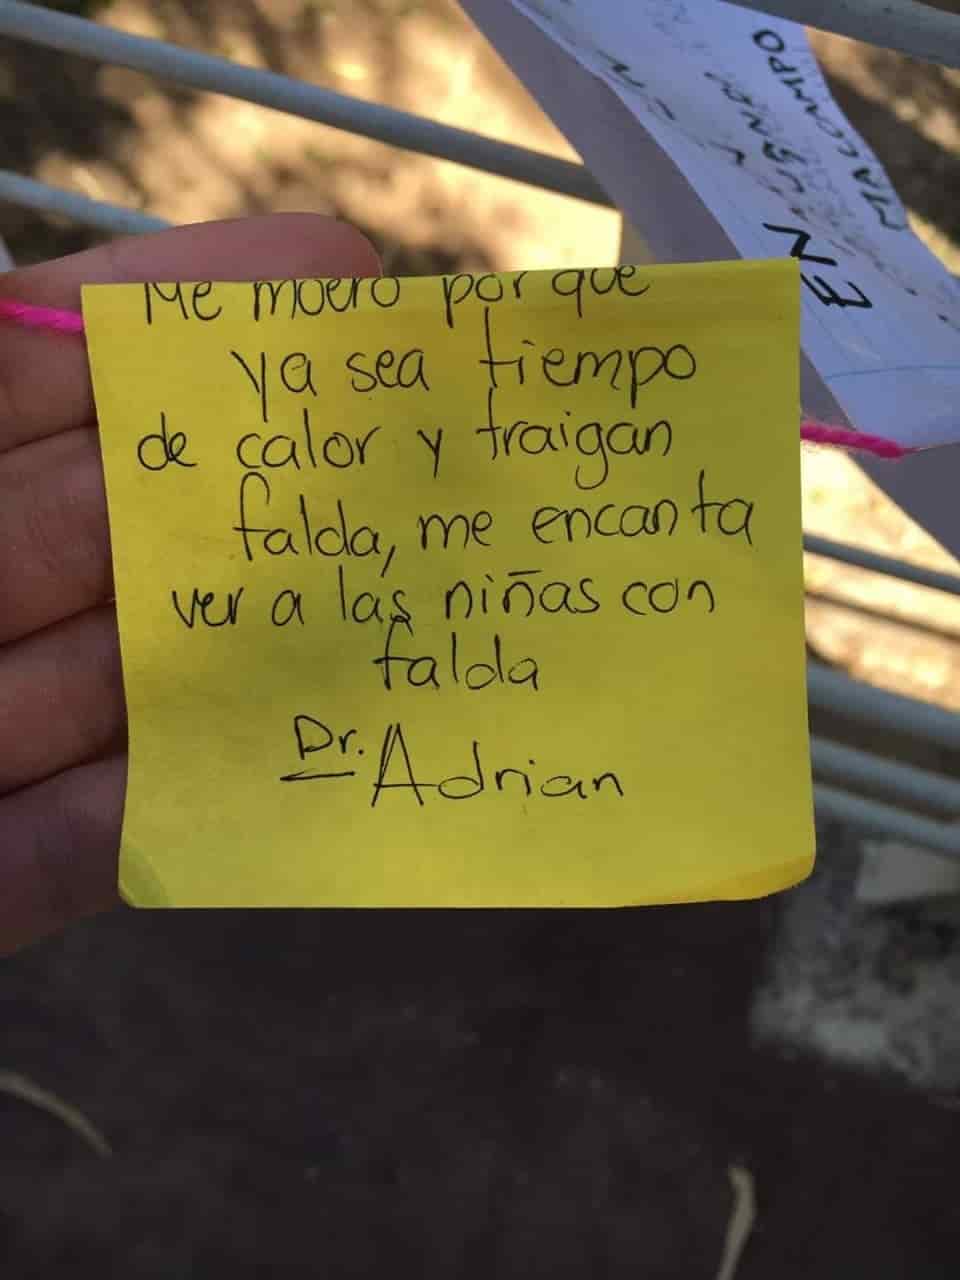 Me muero por que
ya sea tiempo
de calor y traigan
falda, me encanta
ver a las niñas con
falda
Dr. Adrian
EN
MALCAMPO